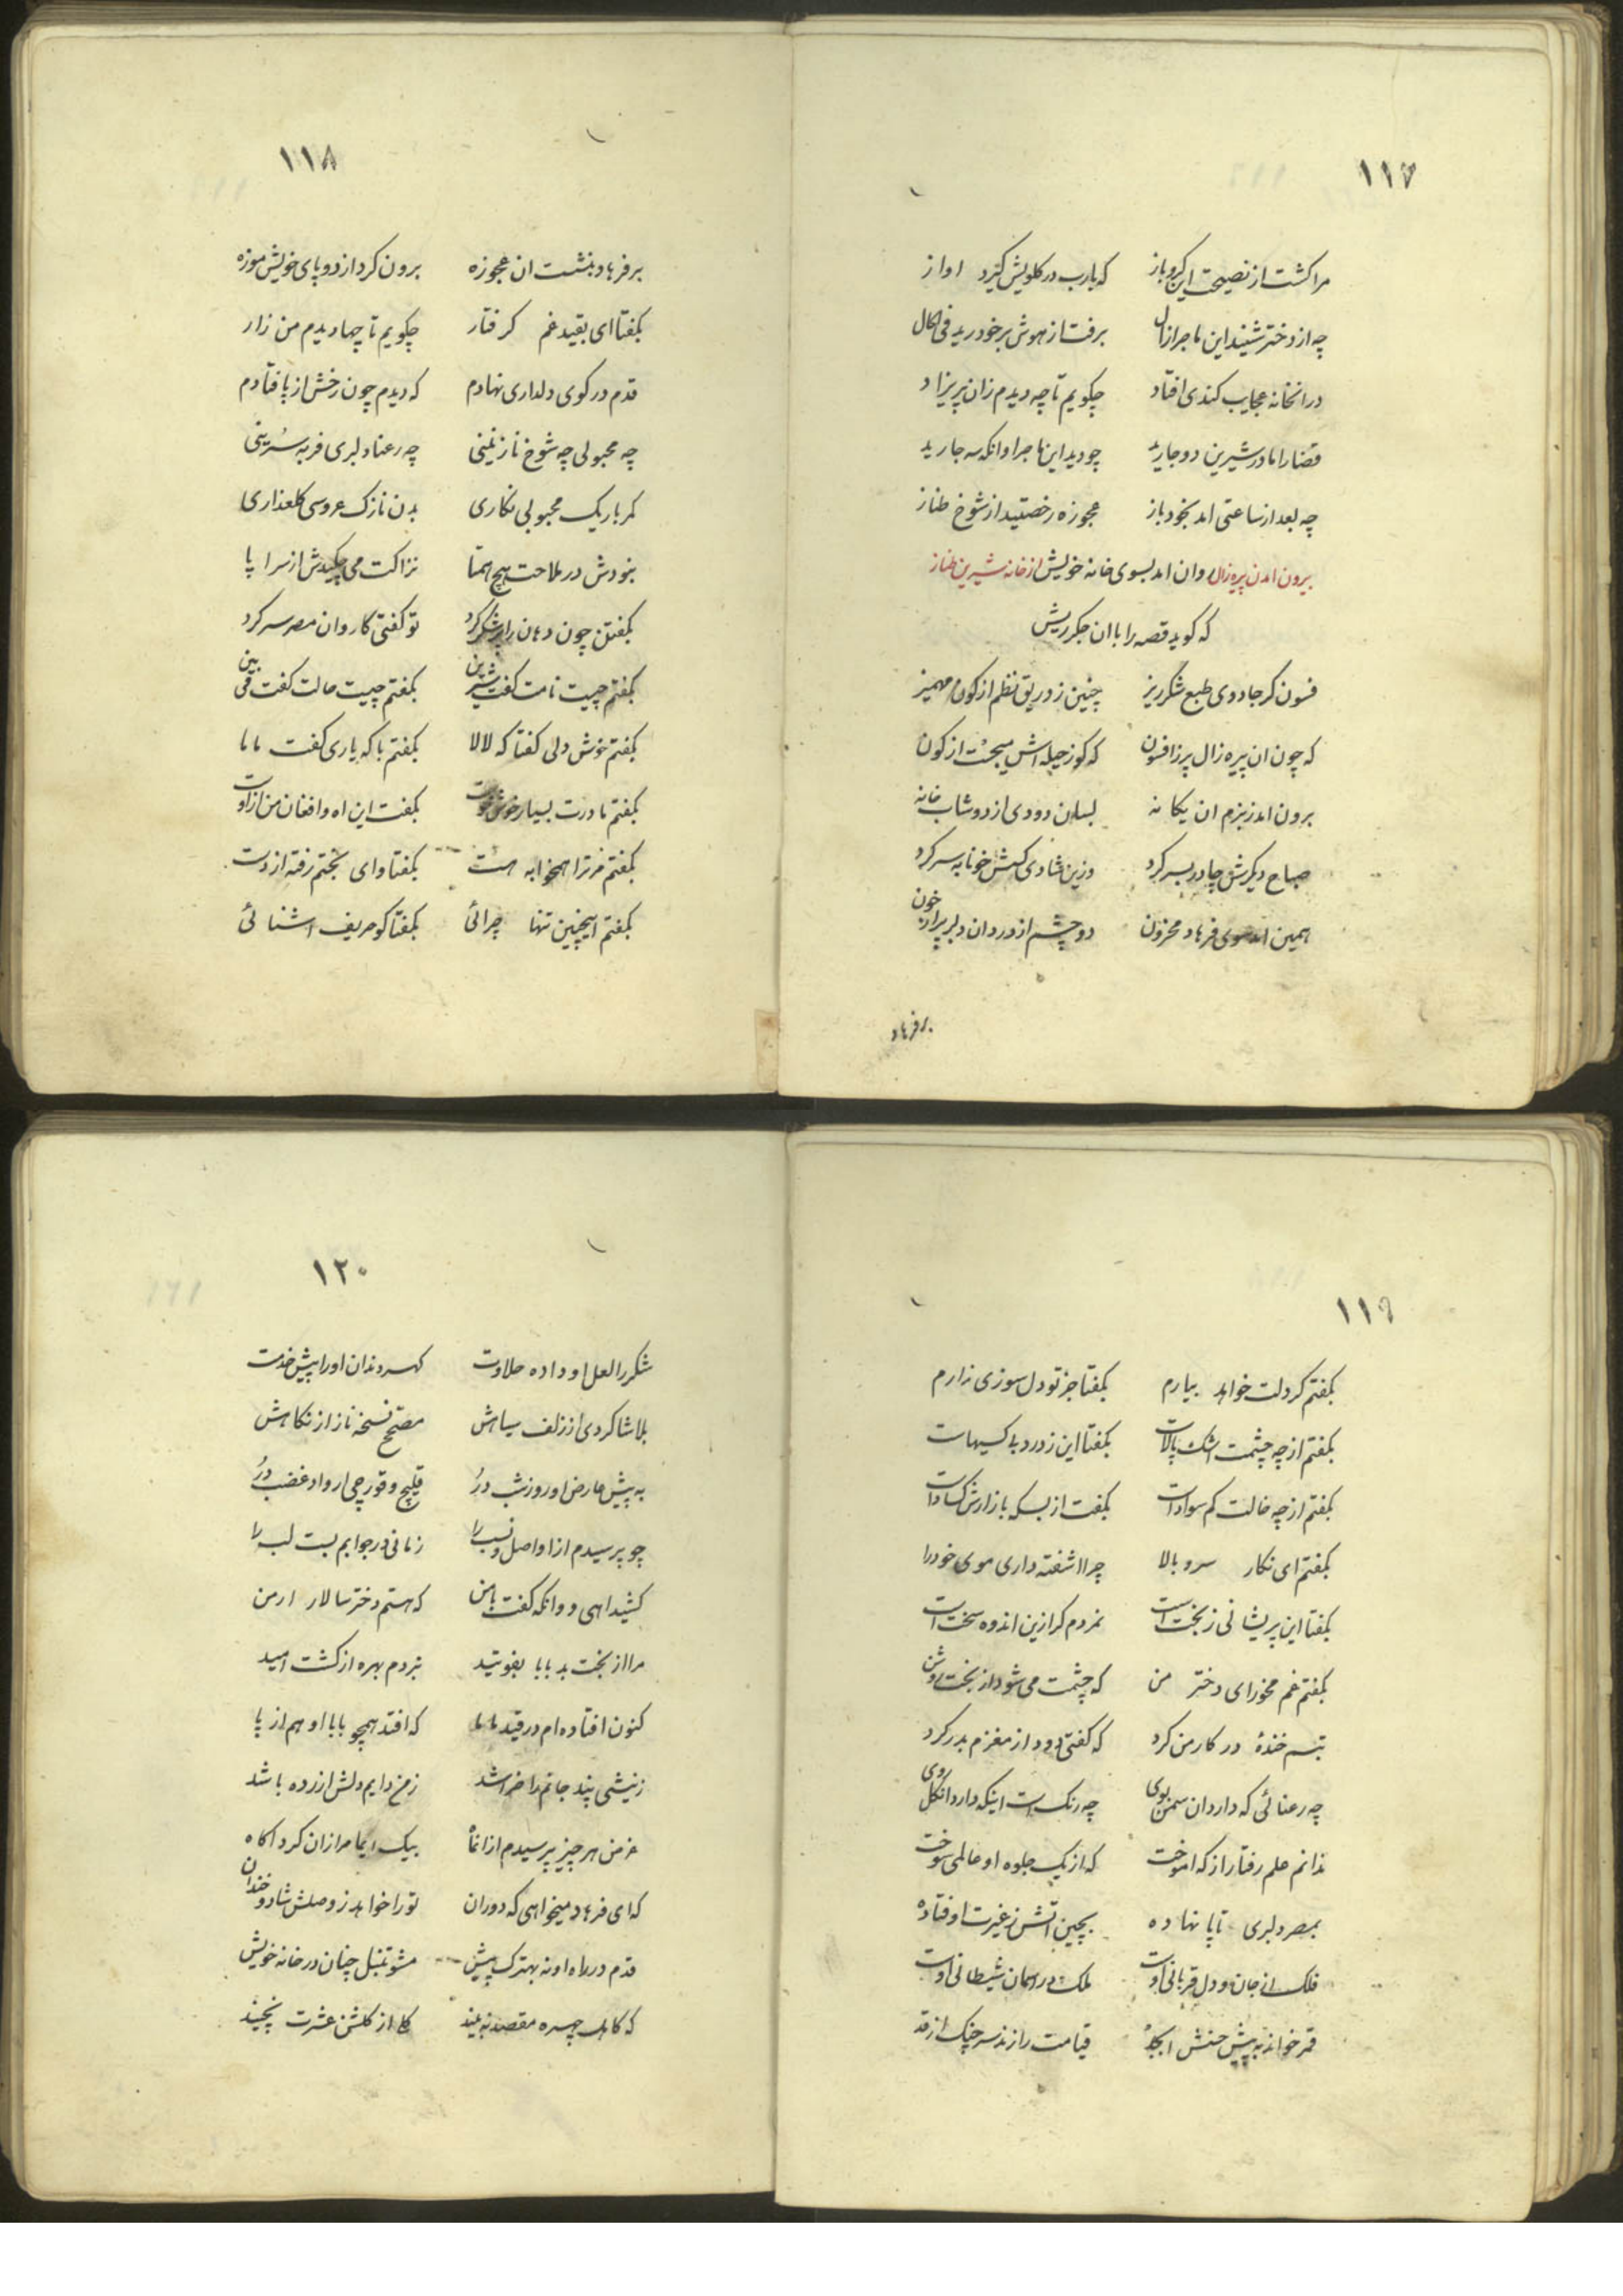 ١١٧
مرا کشت از نصیحت این کرو باز که یارب در کلویش کیرد اواز
چه از دختر شنید این ماجرا زال برفت از هوش بر خود رید فی الحال
در انخانه عجایب کندی افتاد چکویم تا چه دیدم زان پریزاد
قضا را مادر شیرین دو جا رید چو دید این ماجرا وانکه سه جا رید
چه بعد از ساعتی امد بخود باز عجوزه رخصتید از شوخ طناز
بیرون امدن پیره زال روان امد بسوی خانه خویش از خانه شیرین طناز
که کوید قصه را با ان جکر ریش
فسون کر جادوی طبع شکرریز چنین زد ریق نظم از کون مهمیز
که چون ان پیره زال پر ز افسون که کوز حیله اش میجست از کون
برون امد ز بزم ان یکانه بسان دودی از دوشاب خانه
صباح دیکرش چادر بسر کرد وزین شادی کسش خونابه سر کرد
همین امد سوی فرهاد محزون دو چشم از درد ان دلبر پر از خون
بر فرهاد
١١٨
بر فرهاد بنشست ان عجوزه برون کرد از دو پای خویش موزه
بکفتا ای بقید غم کرفتار چکویم تا چها دیدم من زار
قدم در کوی دلداری نهادم که دیدم چون رخش از پا فتادم
چه محبوبی چه شوخ نازنینی چه رعنا دلبری فربه سُرینی
کمر باریک محبوبی نکاری بدن نازک عروسی کلعذاری
بنودش در ملاحت هیچ همتا نزاکت می چکیدش از سرا پا
بکفتن چون دهان را پر شکر کرد تو کفتی کاروان مصر سر کرد
بکفتم چیست نامت کفت شیرین بکفتم چیست حالت کفت می بین
بکفتم خوش دلی کفتا که لالا بکفتم با که یاری کفت ماما
بکفتم مادرت بسیار خوش خوست بکفت این اه و افغان من از اوست
بکفتم مر ترا همخوابه هست بکفتا وای بختم رفته از دست
بکفتم اینچنین تنها چرائی بکفتا کو حریف اشنائی
١١٩
بکفتم کر دلت خواهد بیارم بکفتا جز تو دل سوزی ندارم
بکفتم از چه چشمت اشک پالاست بکفتا این ز درد بی کسیهاست
بکفتم از چه خالت کم سواد است بکفت از بسکه بازارش کساد است
بکفتم ای نکار سرو بالا چرا اشفته داری موی خود را
بکفتا این پریشانی ز بخت است نمردم کر ازین اندوه سخت است
بکفتم غم مخور ای دختر من که چشمت می شود از بخت روشن
تبسم خندهٔ در کار من کرد که کفتی دود از مغزم بدر کرد
چه رعنائی که دارد ان سمن بوی چه رنک است اینکه دارد ان کل روی
ندانم علم رفتار از که اموخت که از یک جلوه او عالمی سوخت
بمصر دلبری تا پا نهاده بچین اتش ز غیرت اوفتاده
فلک از جان و دل قربانی اوست ملک در اسمان شیطانی اوست
قمر خواند به پیش حسنش ابجد قیامت را زند سرچنک از قد
١٢٠
شکر را لعل او داده حلاوت کهر دندان او را پیش خدمت
بلا شاکردی از زلف سیاهش مصحح نسخه ناز از نکاهش
به پیش عارض او روز شب درُ قلیچ و قورچی ابرو اد غضب درُ
چو پرسیدم از او اصل و نسب را زمانی در جوابم بست لب را
کشید اهی و وانکه کفت با من که هستم دختر سالار ارمن
مرا از بخت بد بابا بفوتید نبردم بهره از کشت امید
کنون افتاده ام در قید ماما که افتد همچو بابا او هم از پا
ز نیشی پند جانم را خراشد ز من دایم دلش ازرده باشد
غرض هر چیز پرسیدم از انماه بیک ایما مرا زان کرد اکاه
که ای فرهاد میخواهی که دوران تو را خواهد ز وصلش شاد و خندان
قدم در راه او نه بهترک پیش مشو تنبل چنان در خانه خویش
که کاهل چهره مقصد نه بیند کل از کلشن عشرت نچیند